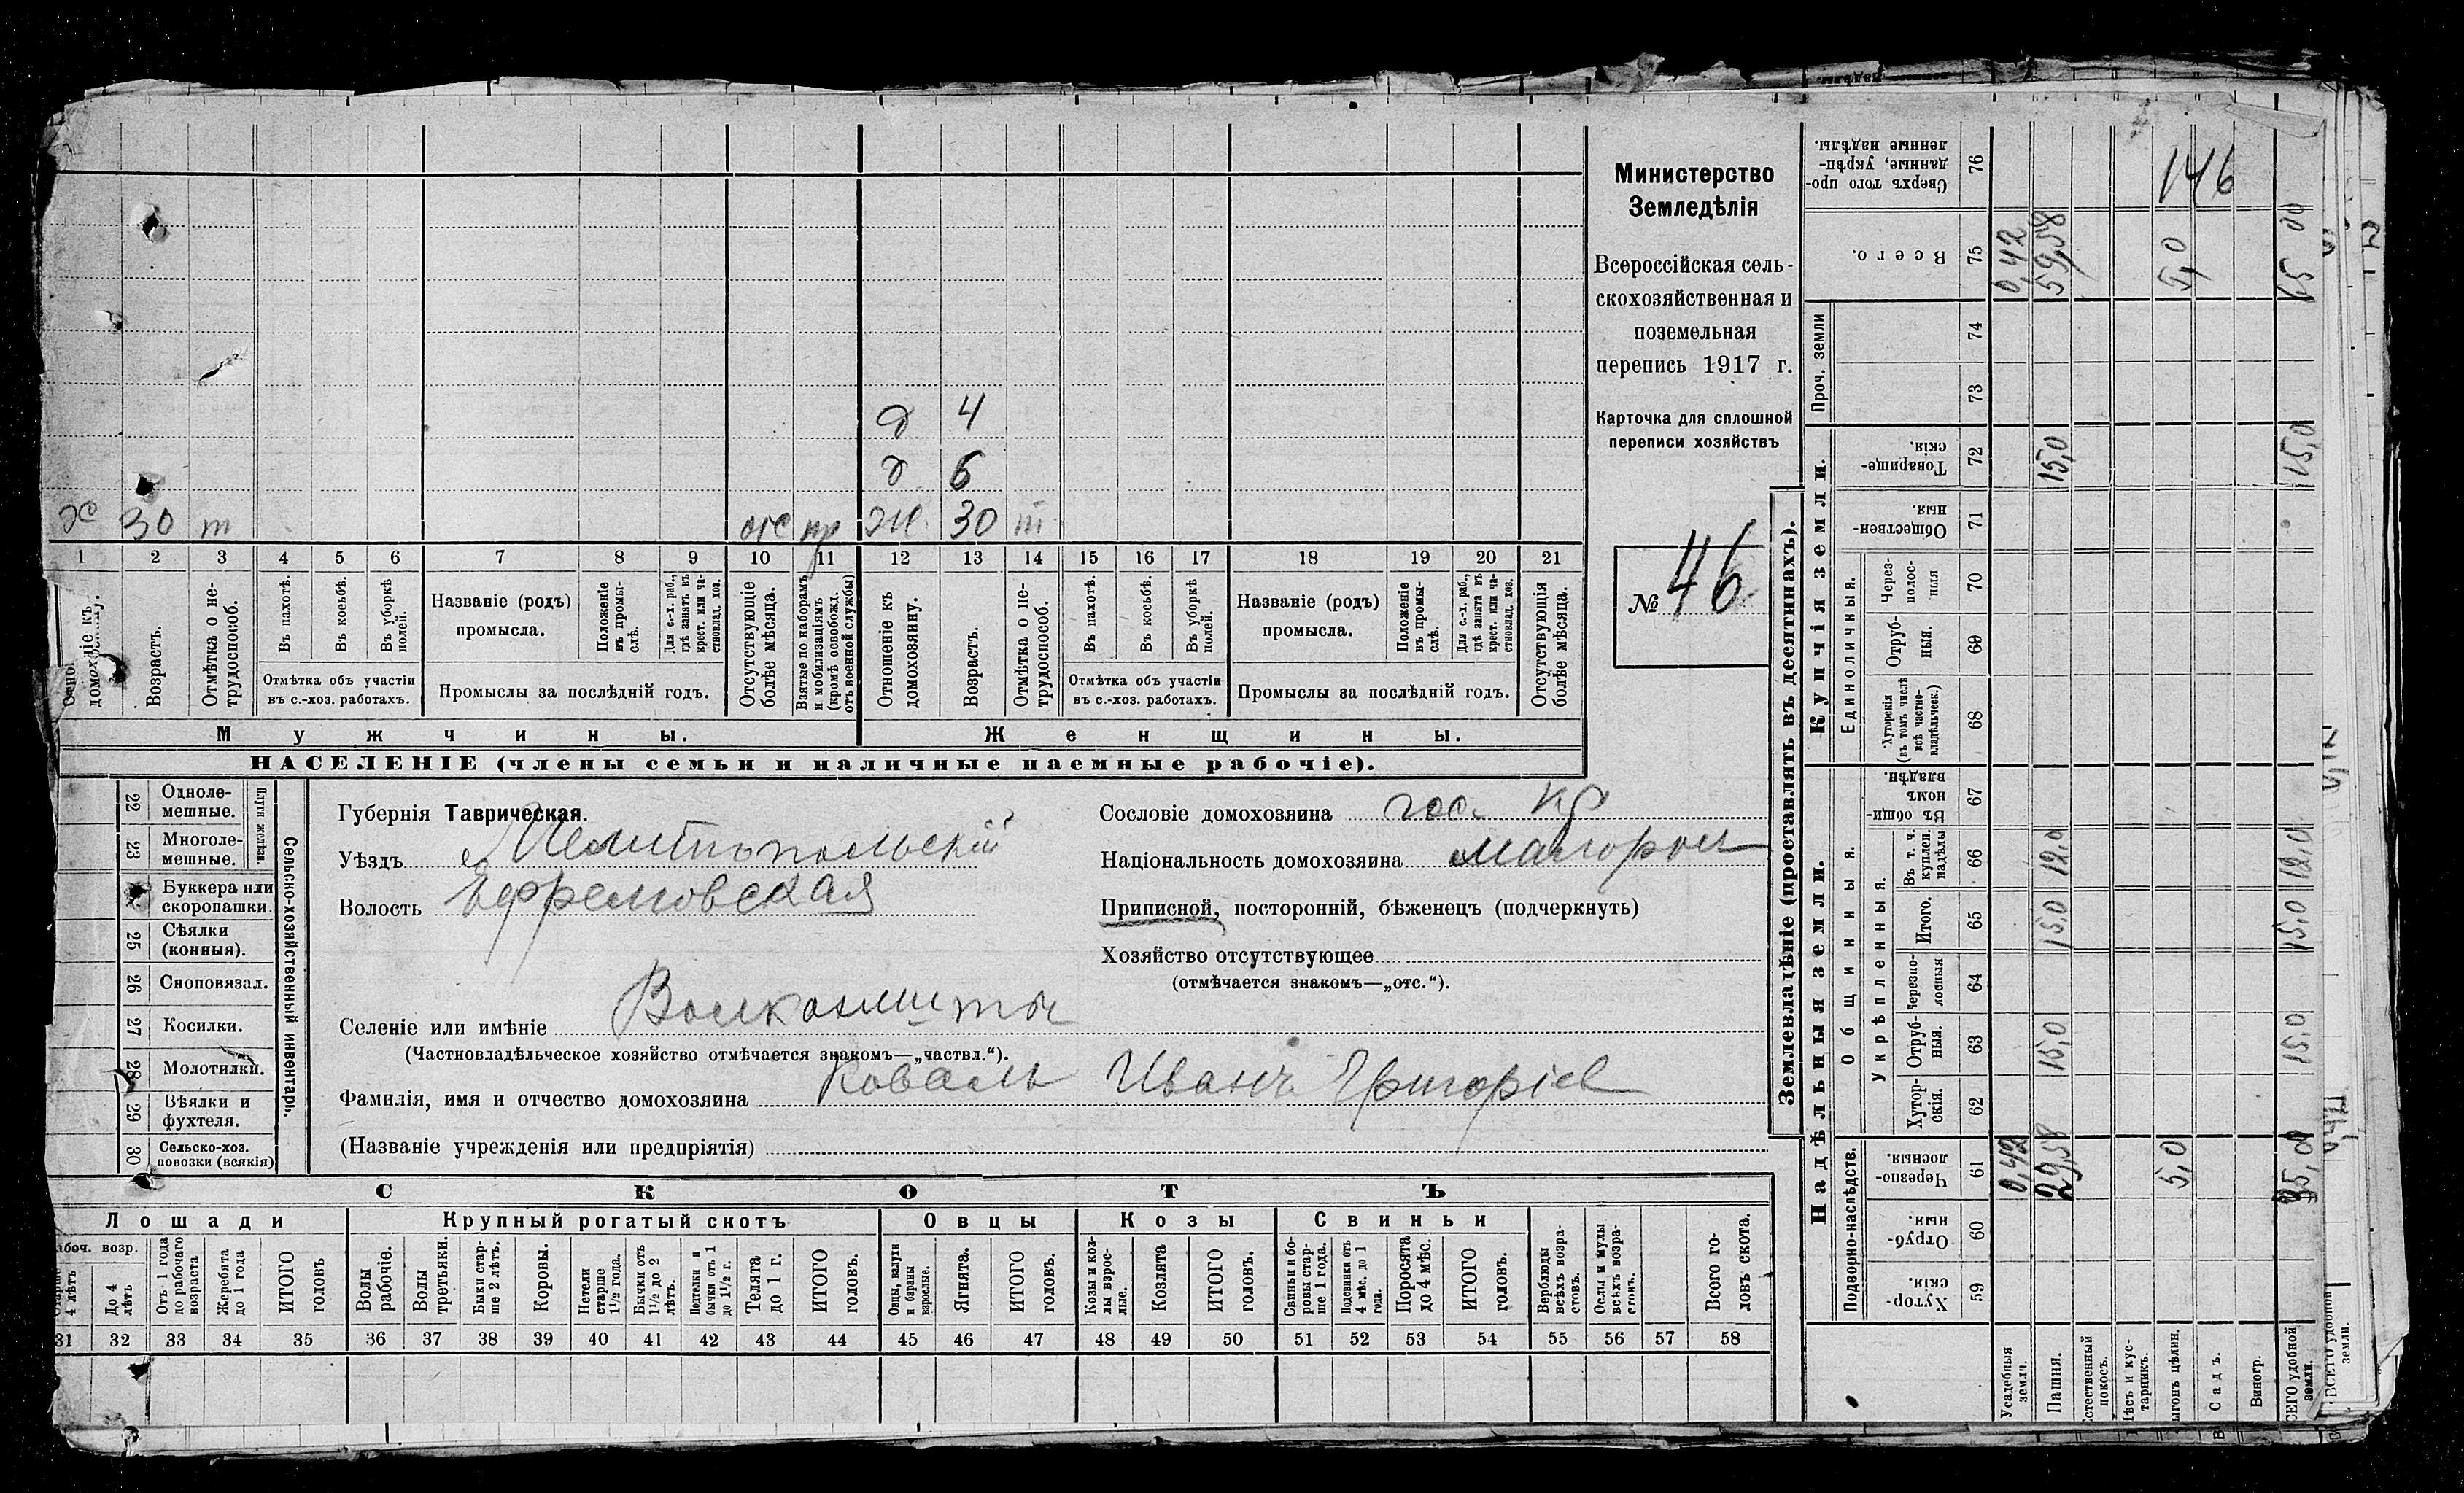 Министерство
Земледѣлія
Всероссійская сель-
скохозяйственная и
поземельная
перепись 1917 г.
Карточка для сплошной
переписи хозяйствъ
№ 46
д 4
д 6
х 30 т отс мр ж 30 т
1 2 3 4 5 6 7 8 9 10 11 12 13 14 15 16 17 18 19 20 21
домохозяину.
Возрастъ.
Отмѣтка о не-
трудоспособ.
Въ пахотѣ.
Въ косьбѣ.
Въ уборкѣ
полей.
Отмѣтка объ участіи
въ с.-хоз. работахъ.
Названіе (родъ)
промысла.
Положеніе
въ промы-
слѣ.
Для с.-х. раб.,
гдѣ занятъ въ
крест. или ча-
стновлад. хоз.
Промыслы за послѣдній годъ.
Отсутствующіе
болѣе мѣсяца.
Взятые по наборамъ
и мобилизаціямъ
(кромѣ освобожд.
отъ военной службы)
Отношеніе къ
домохозяину.
Возрастъ.
Отмѣтка о не-
трудоспособ.
Въ пахотѣ.
Въ косьбѣ.
Въ уборкѣ
полей.
Отмѣтка объ участіи
въ с.-хоз. работахъ.
Названіе (родъ)
промысла.
Положеніе
въ промы-
слѣ.
Для с.-х. раб.,
гдѣ занята въ
крест. или ча-
стновлад. хоз.
Промыслы за послѣдній годъ.
Отсутствующія
болѣе мѣсяца.
Мужчины.
Женщины.
НАСЕЛЕНІЕ (члены семьи и наличные наемные рабочіе).
22 Одноле-
мешные.
23 Многоле-
мешные.
Плуги желѣзн.
Буккера или
скоропашки.
25 Сѣялки
(конныя).
26 Сноповязал.
27 Косилки.
28 Молотилки.
29 Вѣялки и
фухтеля.
30 Сельско-хоз.
повозки (всякія)
Сельско-хозяйственный инвентарь.
Губернія Таврическая.
Уѣздъ Мелитопольскій
Волость Ефремовская
Селеніе или имѣніе Волканешты
(Частновладѣльческое хозяйство отмѣчается знакомъ—„частвл.“).
Фамилія, имя и отчество домохозяина Коваль Иванъ Григоріев
(Названіе учрежденія или предпріятія)
Сословіе домохозяина гос. кр
Національность домохозяина малорос
Приписной, посторонній, бѣженецъ (подчеркнуть)
Хозяйство отсутствующее
(отмѣчается знакомъ—„отс.“).
СКОТЪ
Лошади
Крупный рогатый скотъ
Овцы
Козы
Свиньи
4 лѣтъ
До 4
лѣтъ
Отъ 1 года
до рабочаго
возраста
Жеребята
до 1 года
ИТОГО
головъ
Волы
рабочіе.
Волы
третьяки.
Быки стар-
ше 2 лѣтъ.
Коровы.
Нетели
старше
1½ года.
Бычки отъ
1½ до 2
лѣтъ.
Подтелки и
бычки отъ 1
до 1½ г.
Телята
до 1 г.
ИТОГО
головъ.
Овцы, валухи
и бараны
взрослые.
Ягнята.
ИТОГО
головъ.
Козы и коз-
лы взрос-
лые.
Козлята
ИТОГО
головъ.
Свиньи и бо-
ровы стар-
ше 1 года.
Подсвинки отъ
4 мѣс. до 1
года.
Поросята
до 4 мѣс.
ИТОГО
головъ.
Верблюды
всѣхъ возра-
стовъ.
Ослы и мулы
всѣхъ возра-
стовъ.
Всего го-
ловъ скота.
31 32 33 34 35 36 37 38 39 40 41 42 43 44 45 46 47 48 49 50 51 52 53 54 55 56 57 58
Землевладѣніе (проставлять въ десятинахъ).
Надѣльныя земли.
Купчія земли.
Подворно-наслѣдств.
Общинныя.
Укрѣпленныя.
Единоличныя.
Проч. земли
Сверхъ того про-
данные, укрѣп-
ленные надѣлы.
76
146
Всего.
75 0,42 59,58 5,0 65 00
74
73
Товарище-
скія.
72 15,0 15,0
Обществен-
ныя.
71
Через-
полос-
ныя
70
Отруб-
ныя.
69
Хуторскія
(въ томъ числѣ
всѣ частно-
владѣльческ.)
68
Въ общин-
номъ
владѣн.
67
Въ т. ч.
куплен.
надѣлы
66 12,0 12,0
Итого.
65 15,0 15,0
Черезпо-
лосныя
64
Отруб-
ныя.
63 15,0 15,0
Хутор-
скія.
62
Черезпо-
лосныя.
61 0,42 29,58 5,0 35,00
Отруб-
ныя.
60
Хутор-
скія.
59
Усадебныя
земли.
Пашня.
Естественный
покосъ.
Лѣсъ и кус-
тарникъ.
Выгонъ цѣлин.
Садъ.
Виногр.
ВСЕГО удобной
земли.
ВСЕГО удобной
земли.